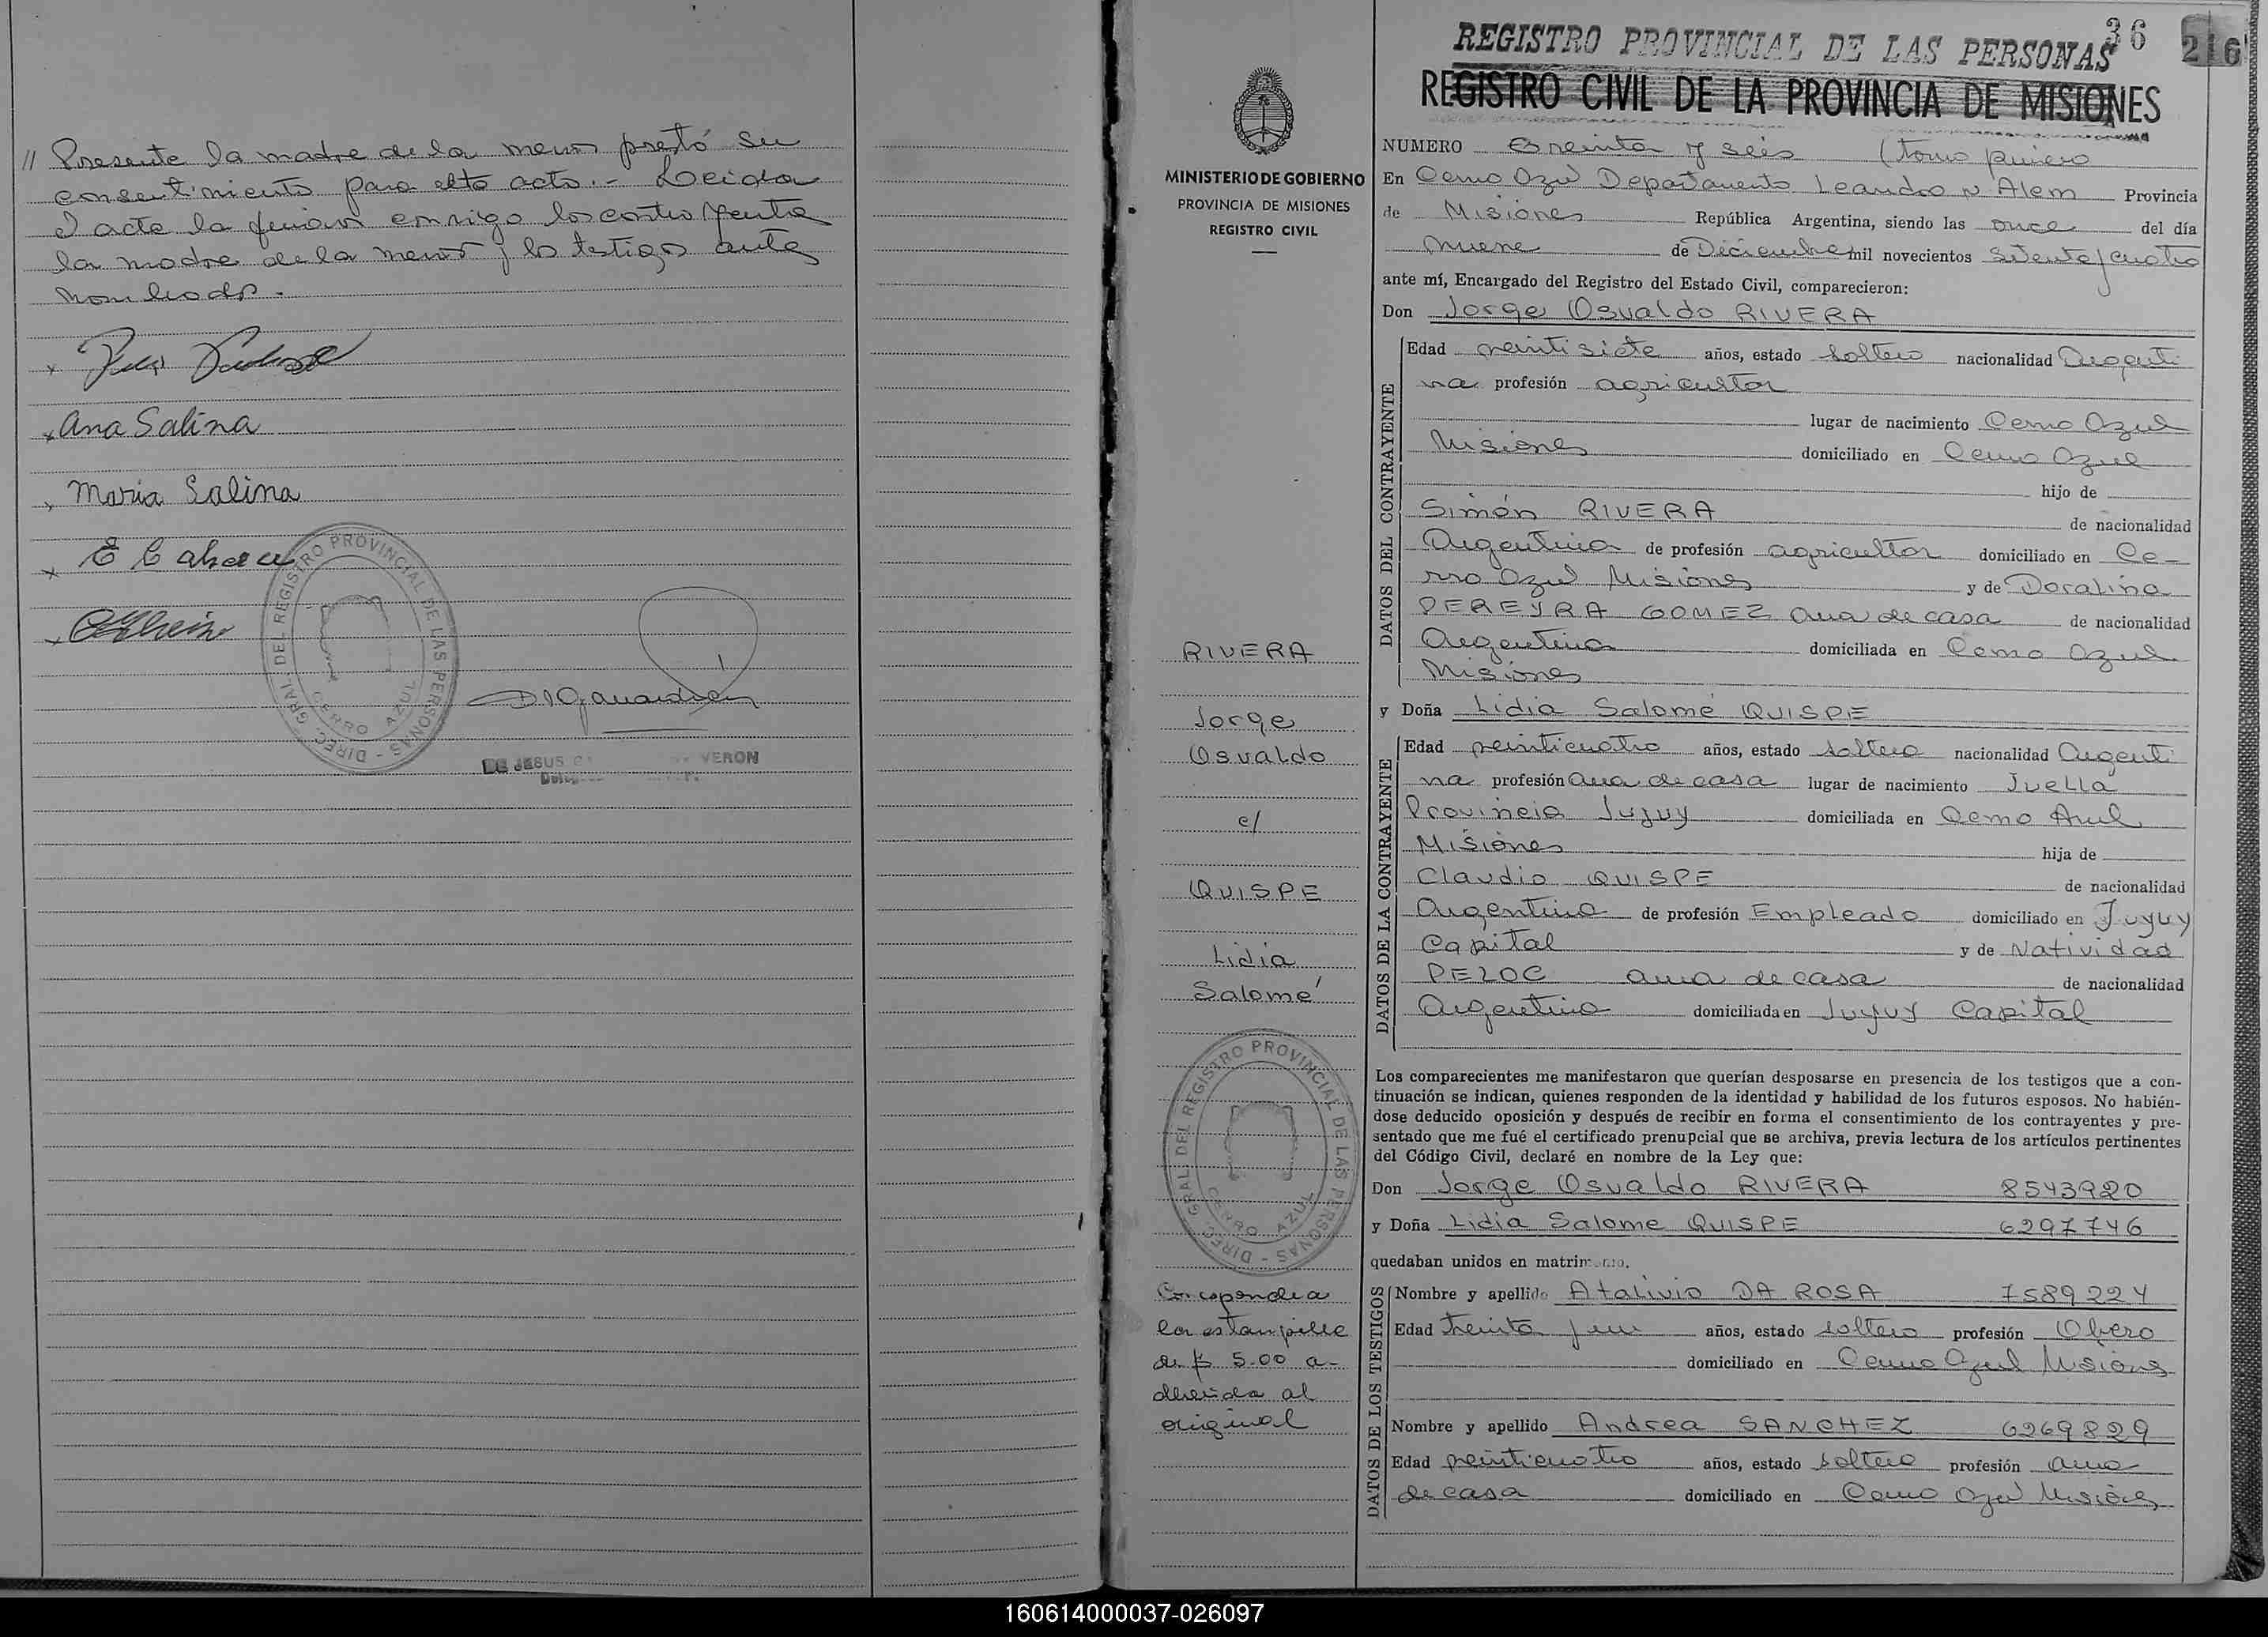 // Presente la madre de la menor prestó su
consentimiento para esto acto.- Leida
el acta la firman conmigo los contrayentes
la madre de la menor y los testigos ante
nombrados.-
Ana Salina
Maria Salina
DIREC. GRAL. DEL REGISTRO PROVINCIAL DE LAS PERSONAS - CERRO AZUL
DE JESUS VERON
36
216
REGISTRO PROVINCIAL DE LAS PERSONAS
REGISTRO CIVIL DE LA PROVINCIA DE MISIONES
MINISTERIO DE GOBIERNO
PROVINCIA DE MISIONES
REGISTRO CIVIL
RIVERA
Jorge
Osvaldo
c/
QUISPE
Lidia
Salomé
DIREC. GRAL. DEL REGISTRO PROVINCIAL DE LAS PERSONAS - CERRO AZUL
Corresponde a
la estampilla
de $ 5.00 a-
dherida al
original
NUMERO Treinta y seis (tomo primero
En Cerro Azul Departamento Leandro N. Alem Provincia
de Misiones República Argentina, siendo las once del día
nueve de Diciembre mil novecientos setenta y cuatro
ante mí, Encargado del Registro del Estado Civil, comparecieron:
Don Jorge Osvaldo RIVERA
DATOS DEL CONTRAYENTE
Edad veintisiete años, estado soltero nacionalidad Argenti
na profesión agricultor
lugar de nacimiento Cerro Azul
Misiones domiciliado en Cerro Azul
hijo de
Simón RIVERA de nacionalidad
Argentina de profesión agricultor domiciliado en Ce-
rro Azul Misiones y de Doralina
PEREYRA GOMEZ Ama de casa de nacionalidad
Argentina domiciliada en Cerro Azul
Misiones
y Doña Lidia Salomé QUISPE
DATOS DE LA CONTRAYENTE
Edad veinticuatro años, estado soltera nacionalidad Argenti
na profesión Ama de casa lugar de nacimiento Juella
Provincia Jujuy domiciliada en Cerro Azul
Misiones hija de
Claudio QUISPE de nacionalidad
Argentina de profesión Empleado domiciliado en Jujuy
Capital y de Natividad
PELOC ama de casa de nacionalidad
Argentina domiciliada en Jujuy Capital
Los comparecientes me manifestaron que querían desposarse en presencia de los testigos que a con-
tinuación se indican, quienes responden de la identidad y habilidad de los futuros esposos. No habién-
dose deducido oposición y después de recibir en forma el consentimiento de los contrayentes y pre-
sentado que me fué el certificado prenupcial que se archiva, previa lectura de los artículos pertinentes
del Código Civil, declaré en nombre de la Ley que:
Don Jorge Osvaldo RIVERA 8543920
y Doña Lidia Salome QUISPE 6297746
quedaban unidos en matrimonio.
DATOS DE LOS TESTIGOS
Nombre y apellido Atalivio DA ROSA 7589224
Edad treinta y un años, estado soltero profesión Obrero
domiciliado en Cerro Azul Misiones
Nombre y apellido Andrea SANCHEZ 6269829
Edad veinticuatro años, estado soltera profesión ama
de casa domiciliado en Cerro Azul Misiones
160614000037-026097